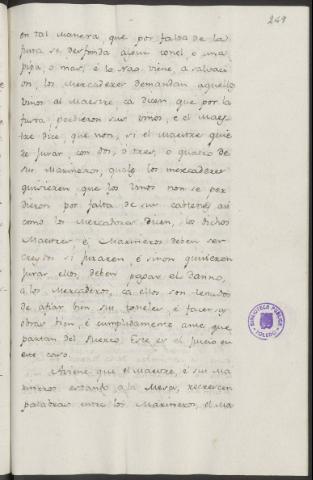 249
en tal manera que por falta de la
fusta se desfonda algun tonel, o una
pipa, o mas, é la Nao viene, a salvaci
on, los Mercaderes demandan aquello
vinos al Maestre, ca dicen, que por la
fusta, perdieron sus vinos, e el Maes
tre dice, que non, si el Maestre quie
re jurar, con dos, o tres, o quatro de
sus Marineros, quales los mercaderes
quisieren, que los vinos non se per
dieron por falta de sus cabtenes, asi
como los Mercadores dicen, los dichos
Maestres é, Marineros deben ser
creydos si juraren, é sinon quisieren
jurar, ellos, deben pagar el danno,
a los Mercaderos, ca ellos son tenudos
de afiar bien sus toneles, é facer su
obras bien, é cumplidamente ante que
partan del Puerto. Este es el juicio en
este caso.
Aviene que el Maestre, é sus Ma
rineros estando a la Mesa, recrescen
palabras entre los Marineros, el Ma
BIBLIOTECA PÚBLICA
TOLEDO